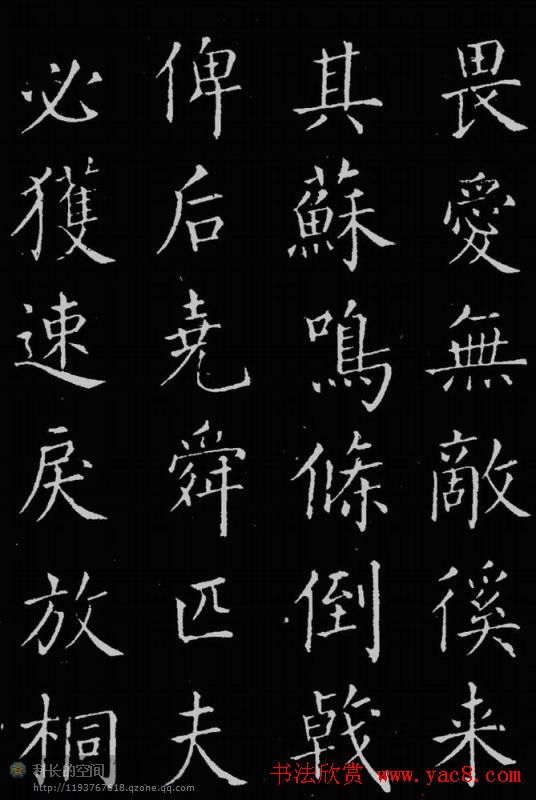 畏愛無敵徯来
其蘇鳴條倒戟
俾后堯舜匹夫
必獲速戾放桐
科长的空间
http://1193767818.qzone.qq.com
书法欣赏 www.yac8.com